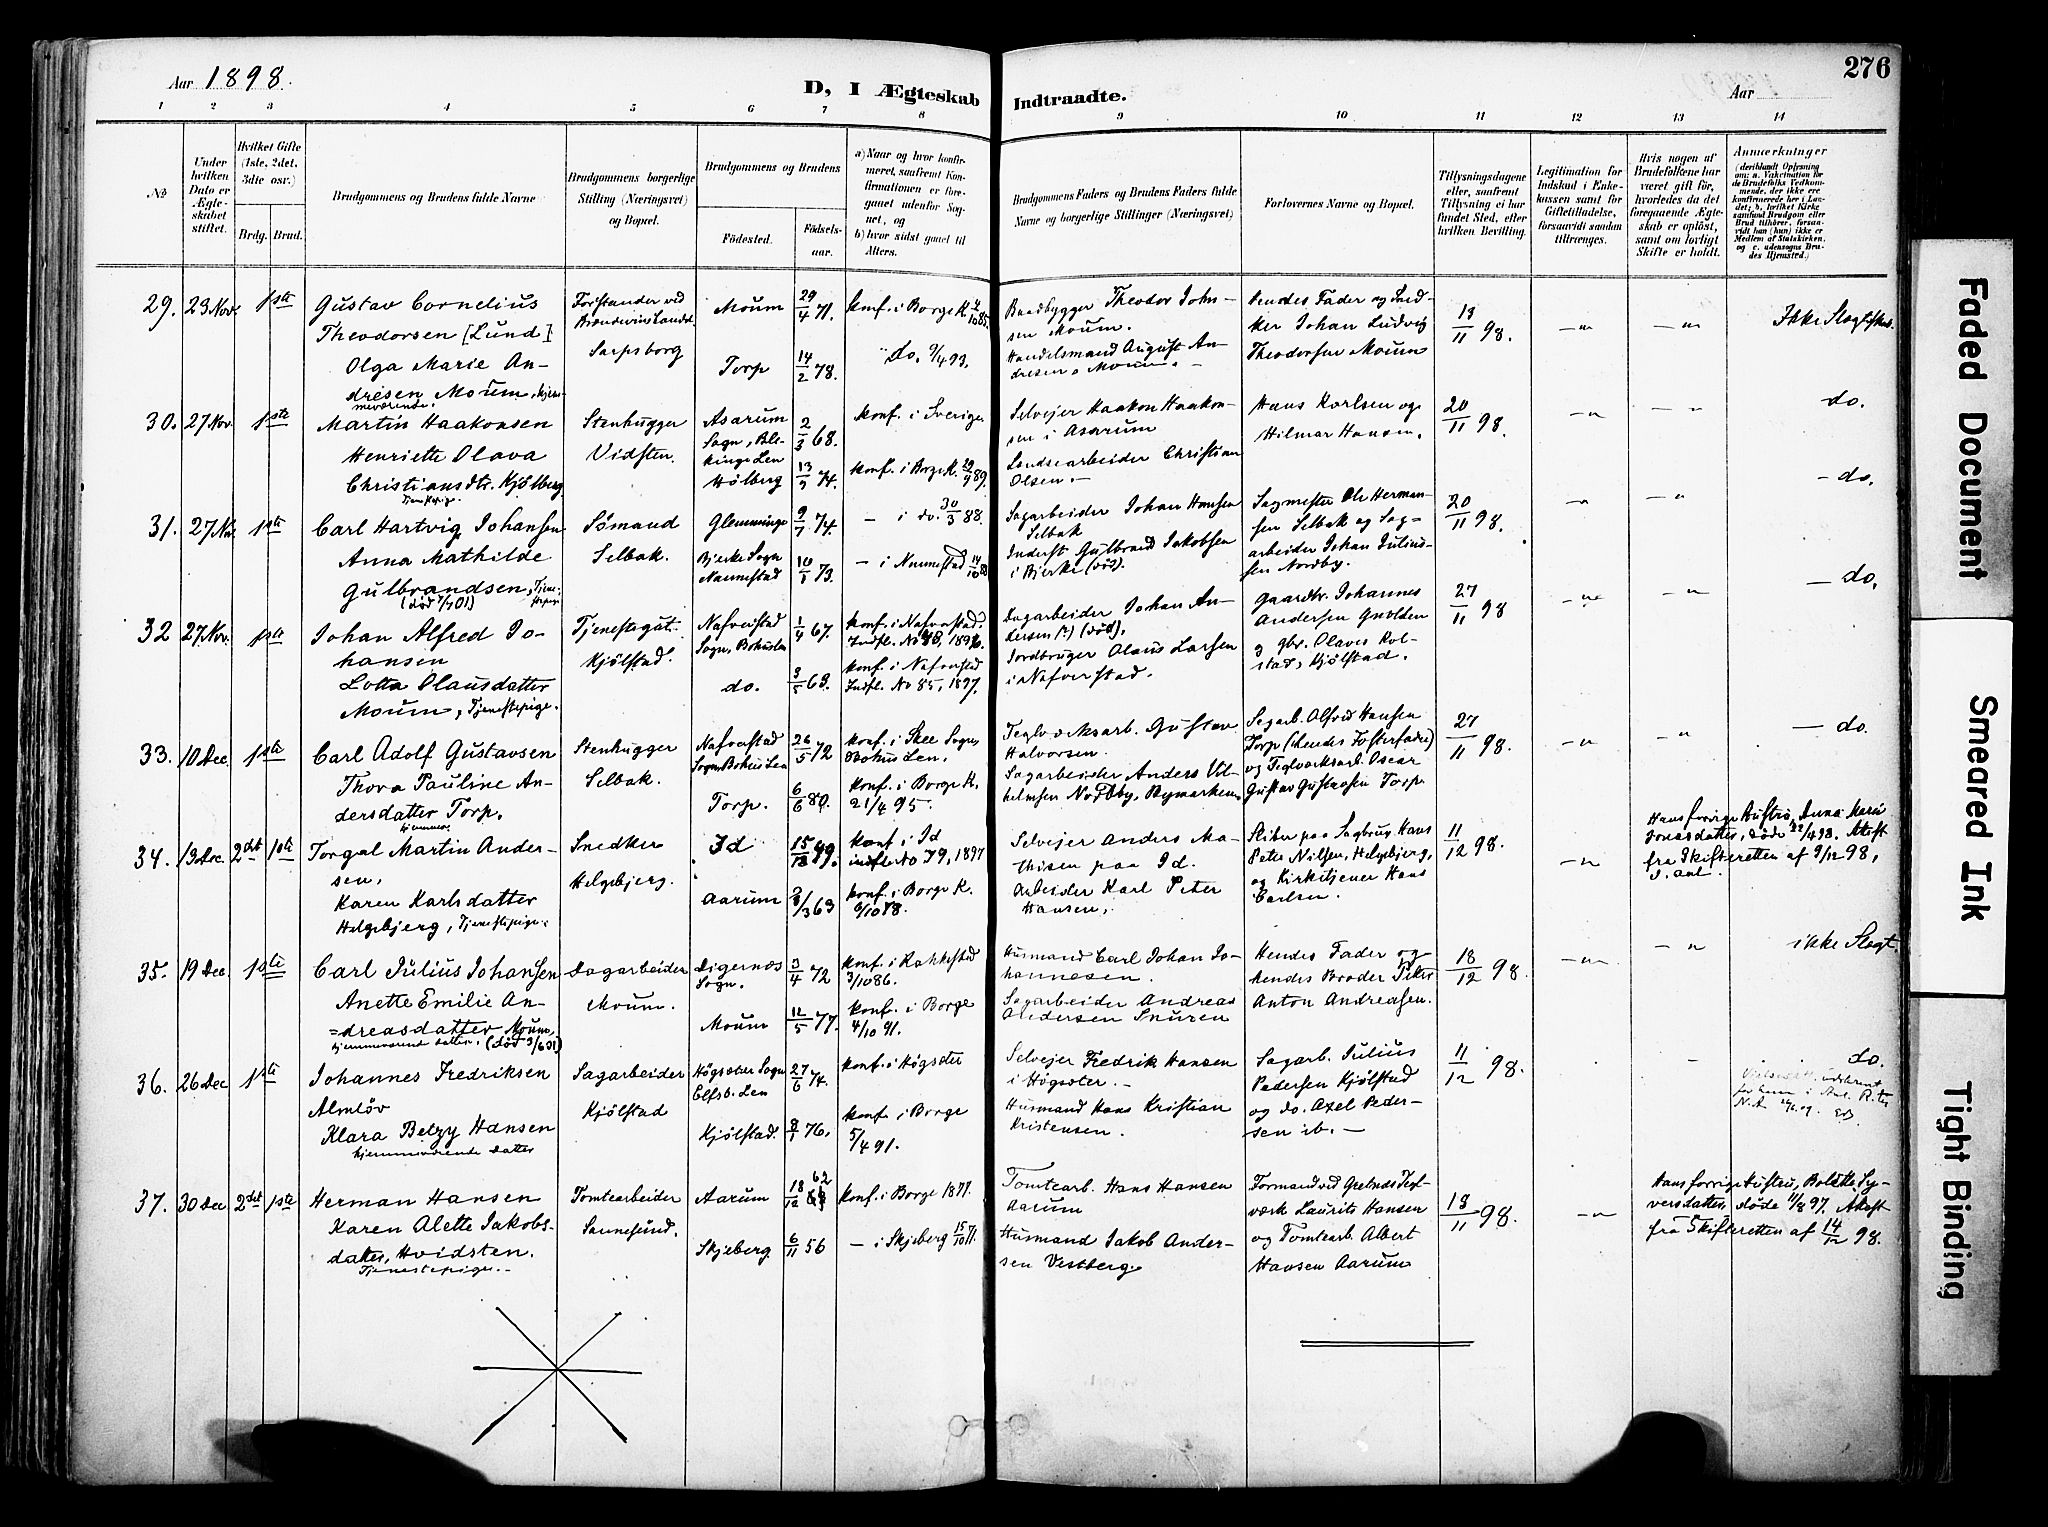 276
Aar 1898.
D, I Ægteskab Indtraadte.
Aar
1 2 3 4 5 6 7 8 9 10 11 12 13 14
No
Under hvilken Dato er Ægteskabet stiftet.
Hvilket Gifte (1ste, 2det, 3die osv.)
Brdg. Brud.
Brudgommens og Brudens fulde Navne
Brudgommens borgerlige Stilling (Næringsvei) og Bopæl.
Brudgommens og Brudens
Fødested.
Fødselsaar.
a) Naar og hvor konfirmeret, saafremt Konfirmationen er foregaaet udenfor Sognet, og
b) hvor sidst gaaet til Alters.
Brudgommens Faders og Brudens Faders fulde Navne og borgerlige Stillinger (Næringsvei)
Forlovernes Navne og Bopæl.
Tillysningsdagene eller, saafremt Tillysning ei har fundet Sted, efter hvilken Bevilling.
Legitimation for Indskud i Enkekassen samt for Giftetilladelse, forsaavidt saadan tiltrænges.
Hvis nogen af Brudefolkene har været gift før, hvorledes da det foregaaende Ægteskab er opløst, samt om lovligt Skifte er holdt.
Anmærkninger (deriblandt Oplysning om: a. Vakcination for de Brudefolks Vedkommende, der ikke ere konfirmerede her i Landet; b. hvilket Kirkesamfund Brudgom eller Brud tilhører, forsaavidt han (hun) ikke er Medlem af Statskirken, og c. udensogns Brudes Hjemsted.)
29. 23 Nov. 1ste Gustav Cornelius Theodorsen [Lund]
Forstander ved
Sarpsborg
Moum 29/4 71. konf. i Borge K.
Baadbygger Theodor Johnsen Moum.
Hendes Fader og Snedker Johan Ludvig Theodorsen Moum
13/11 98. Ikke Slægtskab.
Olga Marie Andresen Moum, hjemmeværende.
Torp 14/2 78. do. 9/4 93.
Handelsmand August Andresen, Moum.
30. 27 Nov. 1ste Martin Haakonsen
Stenhugger Vidsten.
Asarum Sogn, Blekinge Len 2/3 68. konf. i Sverige
Selveier Haakon Haakonsen i Asarum
Hans Karlsen og Hilmar Hansen.
20/11 98. do.
Henriette Olava Christiansdtr. Kjölberg Tjenestepige.
Hølberg 74. konf. i Borge K. 89.
Landsearbeider Christian Olsen.
31. 27 Nov. 1ste Carl Hartvig Johansen
Sømand Selbak.
Glemminge 74. — i do. 30/3 88.
Sagarbeider Johan Hansen Selbak
Sagmester Ole Hermansen Selbak og Sagarbeider Johan Juliussen Nordby.
20/11 98. — do.
Anna Mathilde Gulbrandsen, Tjenestepige
Bjerke Sogn Nannestad 10/1 73. — i Nannestad 14/10 88
Inderst Gulbrand Jakobsen i Bjerke (död).
32 27 Nov. 1ste Johan Alfred Johansen
Tjenestegut. Kjölstad.
Nafverstad Sogn, Bohuslen 1/4 67. konf. i Nafverstad.
Dagarbeider Johan Andersen (?) (död).
Gaardbr. Johannes Andersen og gbr. Olaves Kolstad, Kjölstad.
27/11 98 — do.
Lotta Olausdatter Moum, Tjenestepige.
do. 3/5 63. konf. i Nafverstad Indfl. No 85, 1897.
Jordbruger Olaus Larsen i Nafverstad.
33. 10 Dec. 1ste Carl Adolf Gustavsen
Stenhugger Selbak.
Nafverstad Sogn Bohus Len 26/5 72 konf. i Skee Sogn, Bohus Len.
Gustav Halvorsen.
Sagarb. Alfred Hansen Torp (hendes Fosterfader) og Teglværksarb. Oscar Gustav Gustavsen Torp
27/11 98. — do.
Thora Pauline Andersdatter Torp. hjemmev.
Torp. 6/6 80. konf. i Borge K. 21/4 95.
Sagarbeider Anders Vilhelmsen Nordby, Bymarken
34. 13 Dec. 2det 1ste Torgal Martin Andersen.
Snedker Helgebjerg.
Id 49. konf i Id indfl No 79, 1897
Selveier Anders Mathisen paa Id.
Sliber paa Sagbrug Hans Peter Nilsen, Helgebjerg, og Kirketjener Hans Carlsen.
11/12 98.
Hans forrige Hustru, Anna Marie Jonasdatter, döde 22/4 98. Attest fra Skifteretten af 9/12 98,
Karen Karlsdatter Helgebjerg, Tjenestepige.
Aarum 63 konf. i Borge K.
Arbeider Karl Peter Hansen.
35. 19 Dec. 1ste Carl Julius Johansen
Dagarbeider Moum.
Digernæs Sogn. 3/4 72 konf. i Rakkestad 3/10 86.
Husmand Carl Johan Johannesen.
Hendes Fader og hendes Broder Peter Anton Andreasen.
18/12 98. ikke Slægt.
Anette Emilie Andreasdatter Moum, hjemmeværende datter. (död 3/6 01)
Moum 12/5 77. konf. i Borge 4/10 91.
Sagarbeider Andreas Andersen Snuren
36. 26 Dec 1ste Johannes Fredriksen Almlöv
Sagarbeider Kjölstad
Högsæter Sogn Elfsb. Len 27/6 74. konf. i Högsæter
Selveier Fredrik Hansen i Högsæter.
Sagarb. Julius Pedersen Kjölstad og do. Axel Pedersen ib.
11/12 98. do.
Klara Betzy Hansen hjemmeværende datter
Kjölstad. 8/1 76. konf i Borge 5/4 91.
Husmand Hans Kristian Kristensen.
37. 30 Dec 2det 1ste Herman Hansen
Tomtearbeider Sannesund.
Aarum 18/12 62 konf. i Borge 1877.
Tomtearb. Hans Hansen Aarum
Formand ved Greåker Teglværk Laurits Hansen og Tomtearb. Albert Hansen Aarum
13/11 98.
Hans forrige Hustru, Bolette Syversdatter, döde 11/8 97. Attest fra Skifteretten af 14/12 98.
Karen Alette Jakobsdatter, Hvidsten. Tjenestepige.
Skjeberg 6/11 56 — i Skjeberg 15/10 71.
Husmand Jakob Andersen Vestberg.
Faded Document
Smeared Ink
Tight Binding